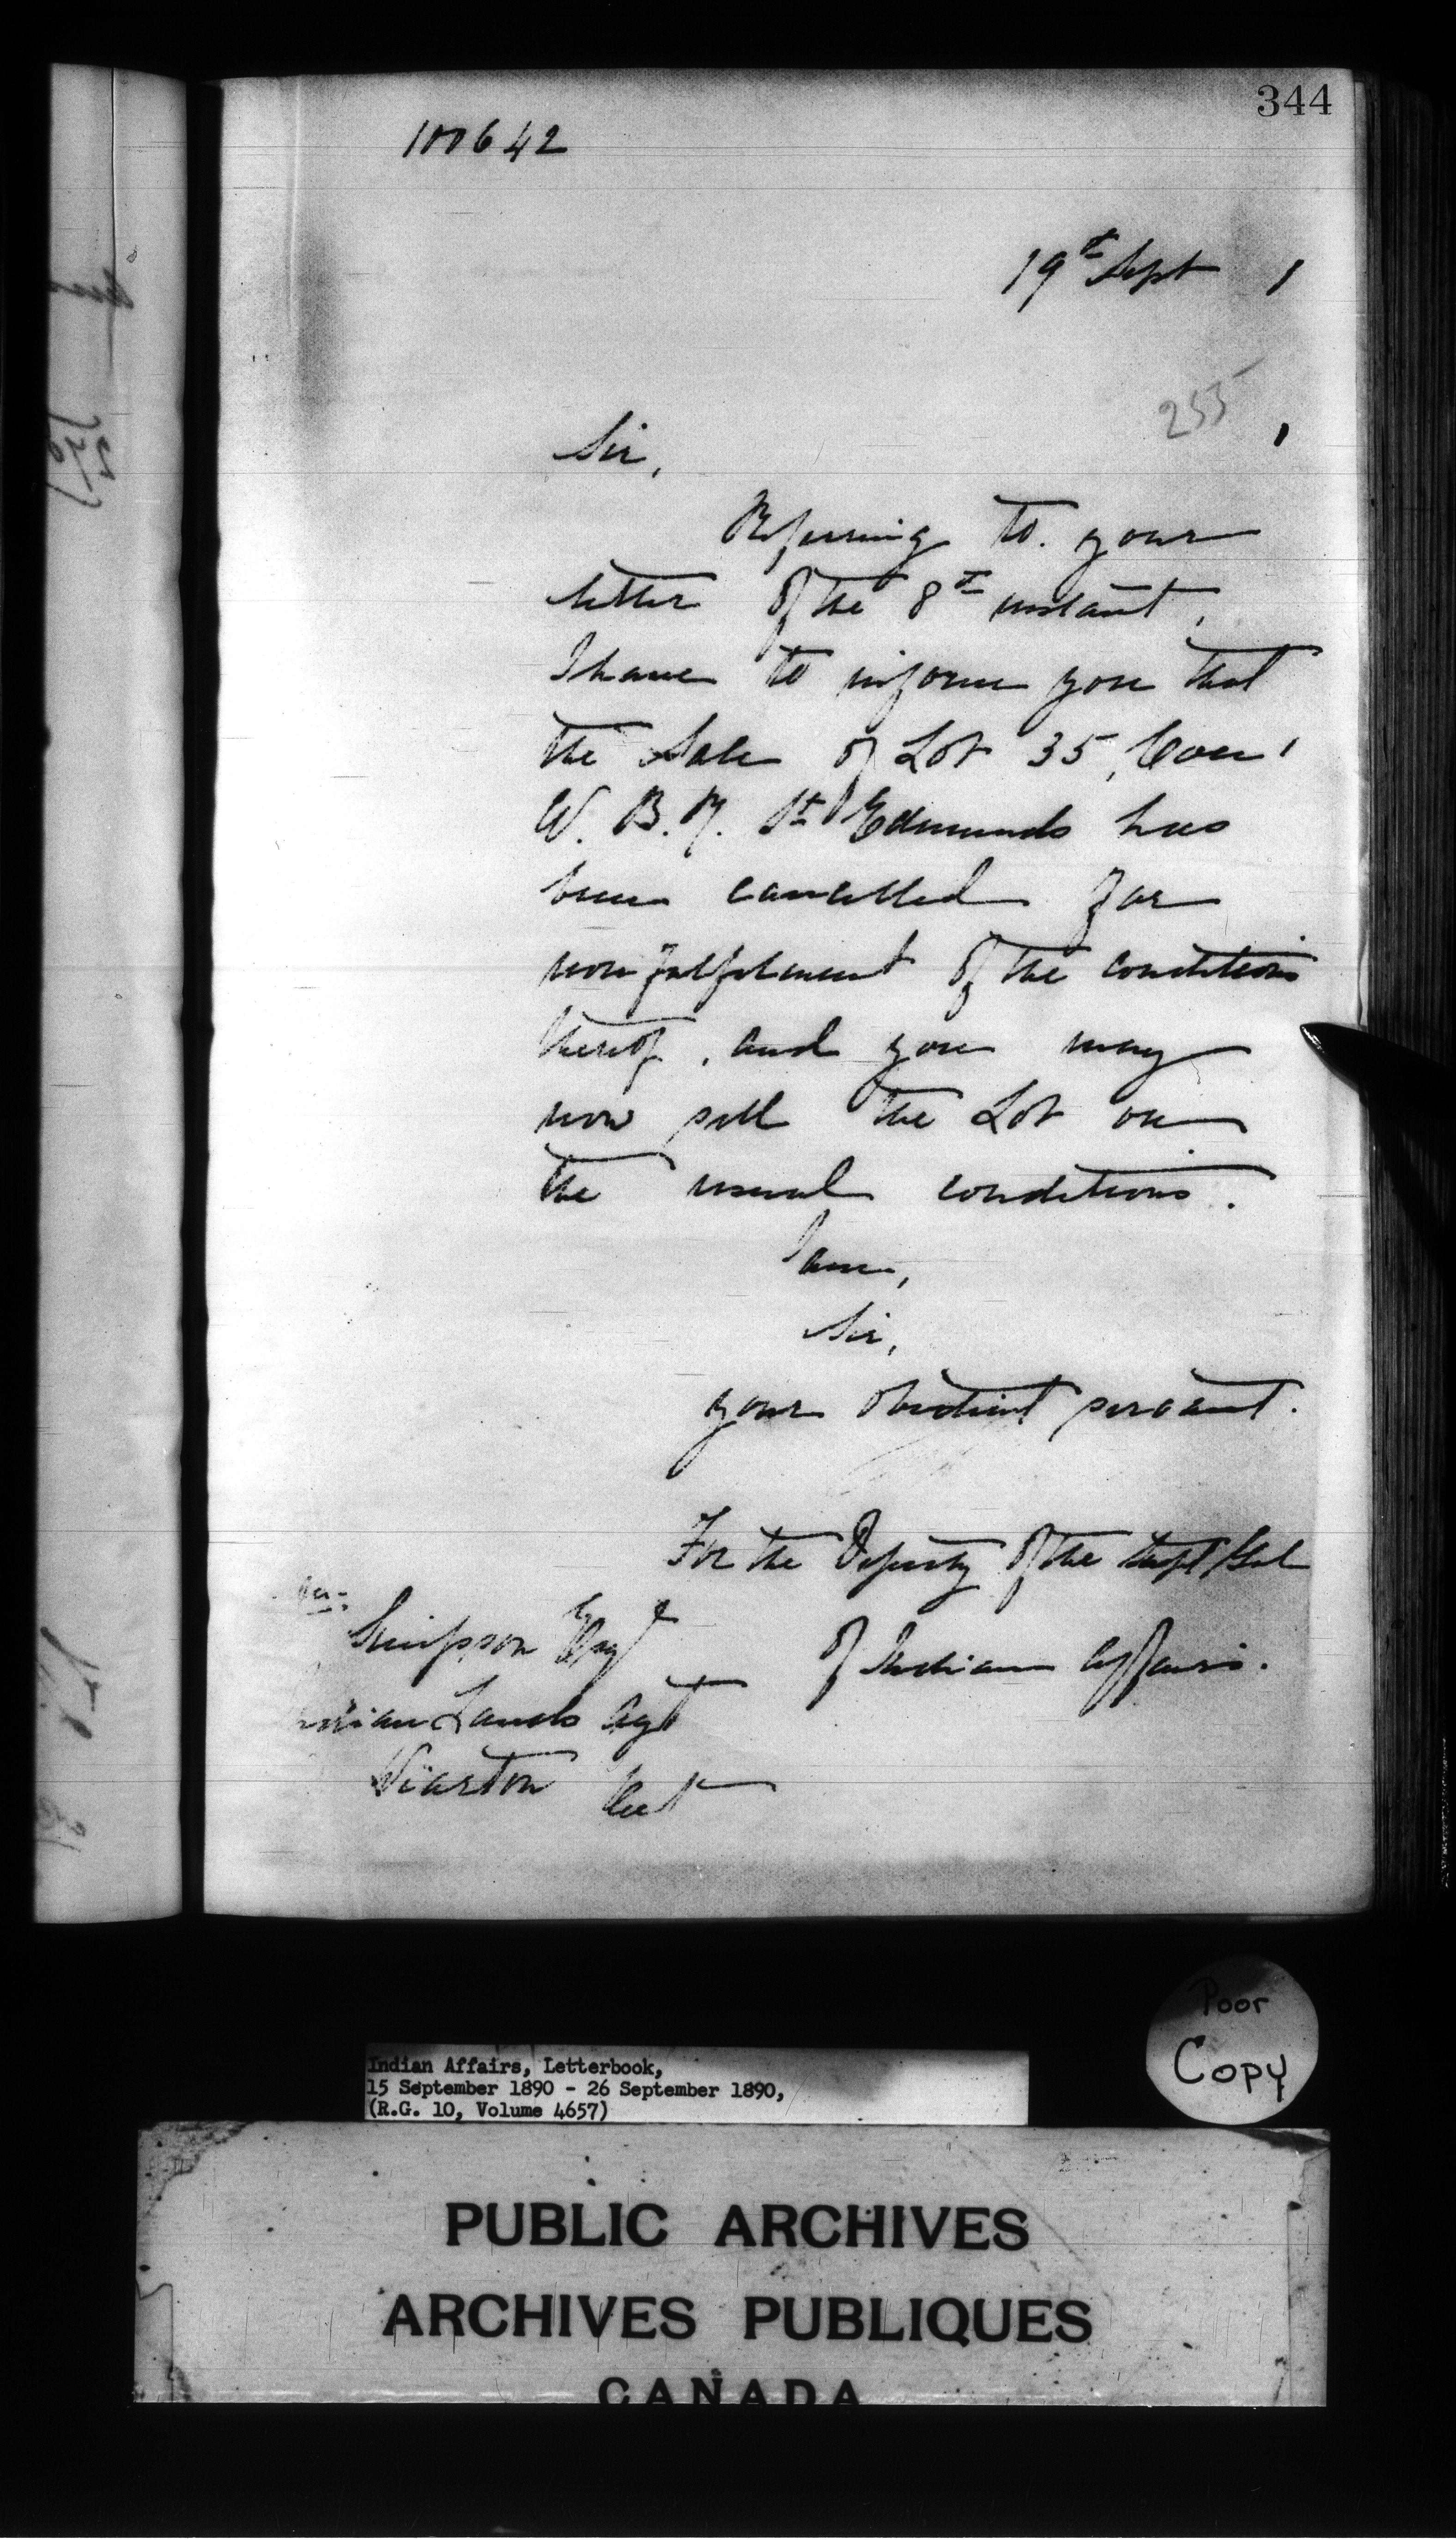 344
100642
19th Sept
255
Sir,
Referring to your
letter of the 8th instant,
I have to inform you that
the Sale of Lot 35, Con 1
W. B. R. St Edmunds has
been cancelled for
nonfulfilment of the conditions
thereof, and you may
now sell the Lot on
the usual conditions.
I am,
Sir,
your obedient servant.
For the Deputy of the Supt Genl
of Indian Affairs.
Simpson Esqre
Indian Lands Agt
Wiarton Ont
Poor
Copy
Indian Affairs, Letterbook,
15 September 1890 - 26 September 1890,
(R.G. 10, Volume 4657)
PUBLIC ARCHIVES
ARCHIVES PUBLIQUES
CANADA